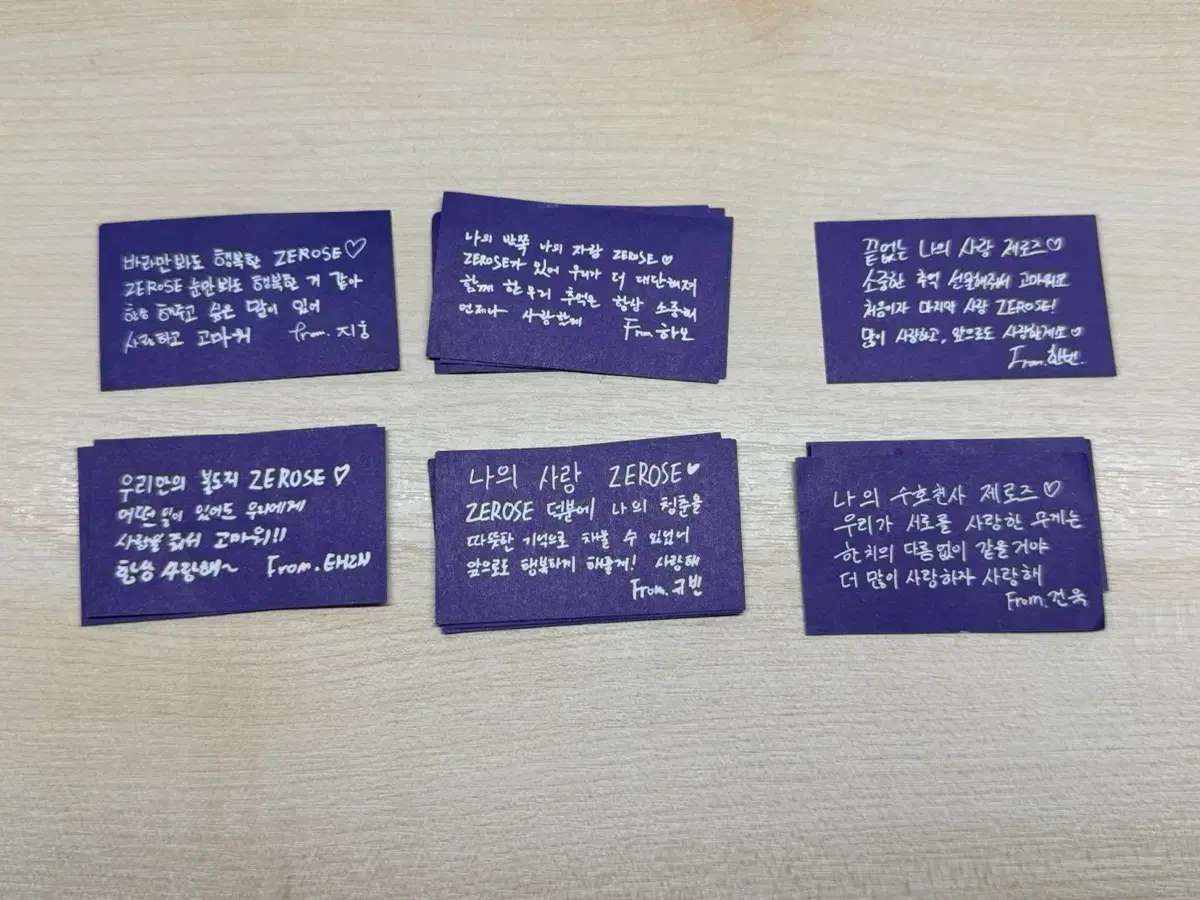 바라만봐도 행복한 ZEROSE♡
ZEROSE 눈만봐도 행복한 거 같아
항상 해주고 싶은 말이 있어
사랑하고 고마워 from. 지웅
나의 반쪽 나의 자랑 ZEROSE♡
ZEROSE가 있어 우리가 더 대단해져
함께 한 우리 추억은 항상 소중해
언제나 사랑한해 From. 하오
끝없는 나의 사랑 제로즈♡
소중한 추억 선물해줘서 고마워요
처음이자 마지막 사랑 ZEROSE!
많이 사랑하고, 앞으로도 사랑할게요♡
From. 한빈.
우리만의 ZEROSE♡
어떤 일이 있어도 우리에게
사랑을 줘서 고마워!!
항상 사랑해~ From. 태래
나의 사랑 ZEROSE♥
ZEROSE 덕분에 나의 청춘을
따뜻한 기억으로 채울 수 있었어
앞으로도 행복하게 해줄게! 사랑해
From. 규빈
나의 수호천사 제로즈♡
우리가 서로를 사랑한 무게는
한치의 다름없이 같을거야
더 많이 사랑하자 사랑해
From. 건욱